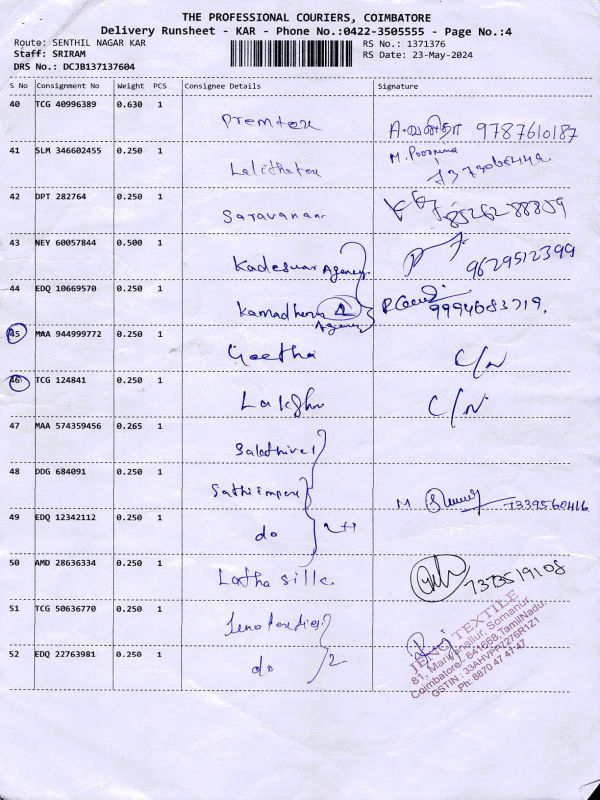 THE PROFESSIONAL COURIERS, COIMBATORE
Delivery Runsheet - KAR - Phone No.:0422-3505555 - Page No.:4
Route: SENTHIL NAGAR KAR
RS No.: 1371376
Staff: SRIRAM
RS Date: 23-May-2024
DRS No.: DCJB137137604
S No Consignment No Weight PCS Consignee Details Signature
40 TCG 40996389 0.630 1
Premtex A.வனிதா 9787610187
41 SLM 346602455 0.250 1
Lalithatex M. Poornima
42 DPT 282764 0.250 1
Saravanan 8526288809
43 NEY 60057844 0.500 1
Kadeswar Agency 9629512399
44 EDQ 10669570 0.250 1
Kamadhenu Agency 2 9994683719.
45 MAA 944999772 0.250 1
Geetha C/N
46 TCG 124841 0.250 1
Lakshmi C/N
47 MAA 574359456 0.265 1
Sakthivel
48 DDG 684091 0.250 1
M 7339560416
49 EDQ 12342112 0.250 1
do
50 AMD 28636334 0.250 1
Latha silk. 7373519108
51 TCG 50636770 0.250 1
52 EDQ 22763981 0.250 1
do 2
JENO TEXTILE
Somanur,
Coimbatore - 641668, TamilNadu.
GSTIN : 33AHVPP7276R1Z1
Ph: 8870 47 47 47